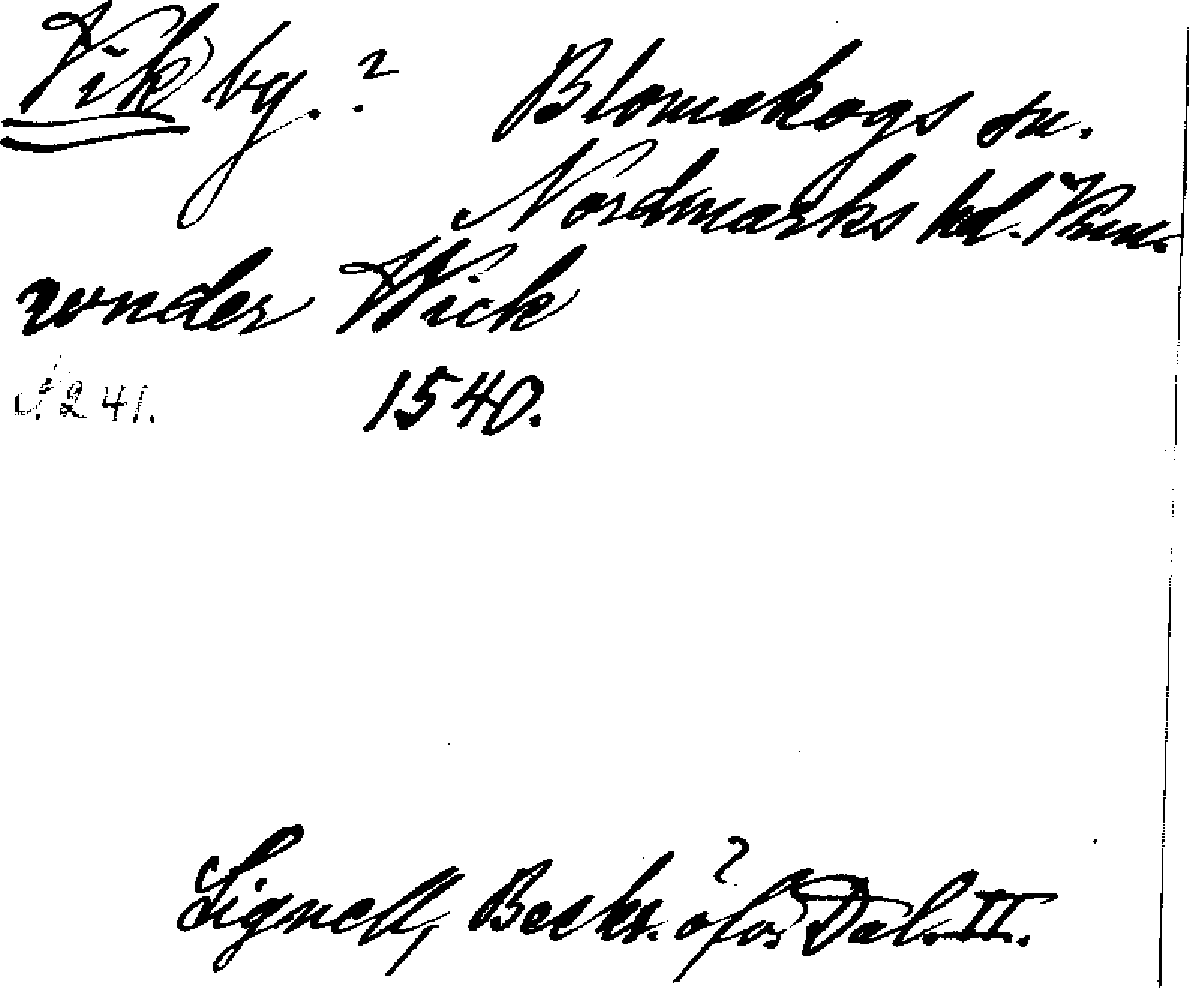 Vik by. ? Blomskogs sn.
Nordmarks hd. Vrml.
vnder Wick
S. 241. 1540.
Lignell, Beskr. öfver Dal. II.
?